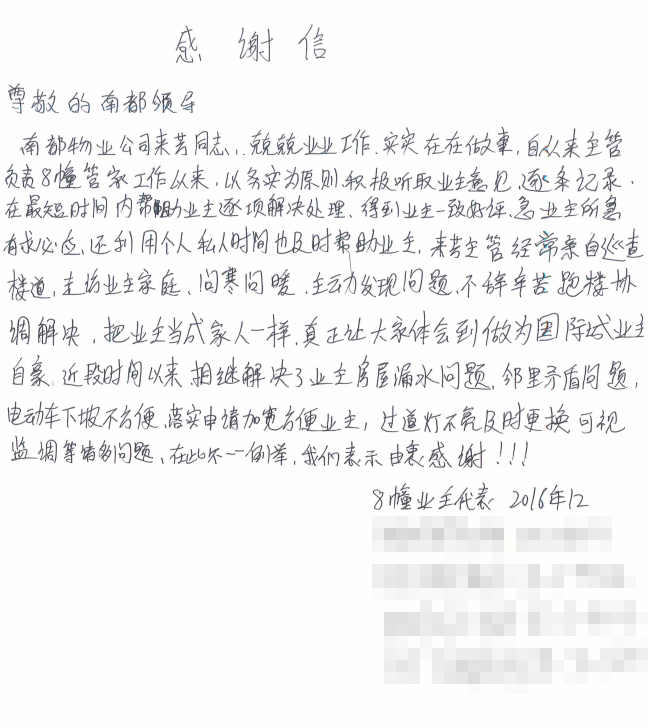 感谢信
尊敬的南都领导
南都物业公司来芳同志,兢兢业业工作.实实在在做事,自从来主管
负责8幢管家工作以来,以务实为原则,积极听取业主意见,逐条记录.
在最短时间内帮助业主逐项解决处理,得到业主一致好评,急业主所急
有求必应,还利用个人私人时间也及时帮助业主,来芳主管经常亲自巡查
楼道,走访业主家庭、问寒问暖、主动发现问题、不辞辛苦跑楼协
调解决,把业主当成家人一样,真正让大家体会到做为国际城业主
自豪、近段时间以来相继解决了业主房屋漏水问题,邻里矛盾问题,
电动车下坡不方便、落实申请加宽方便业主,过道灯不亮及时更换可视
监调等诸多问题、在此不一一例举,我们表示由衷感谢!!!
8幢业主代表 2016年12